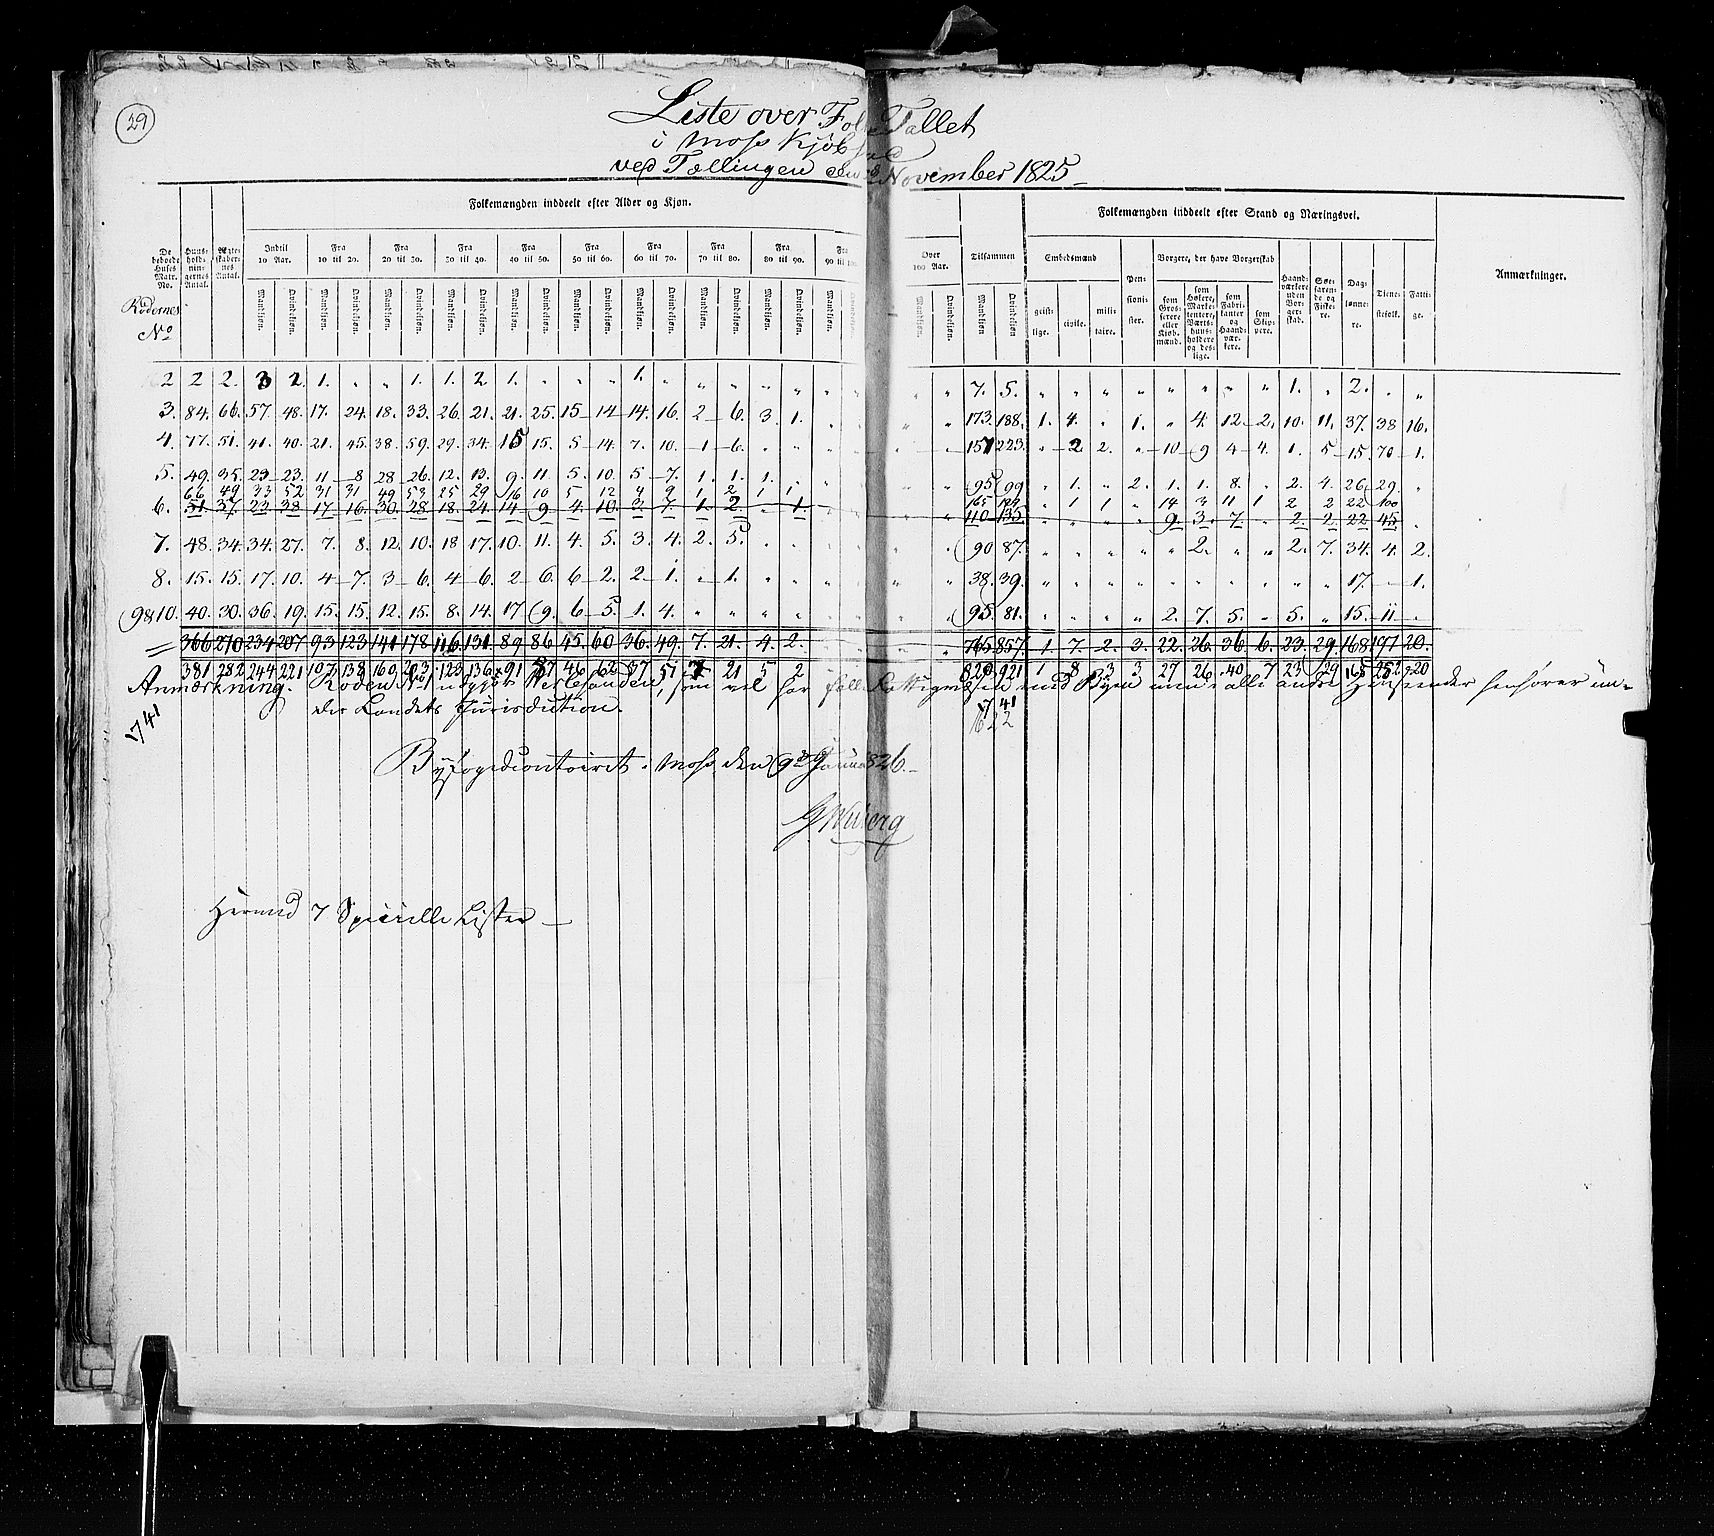 29
Liste over Folke Tallet
i Moss Kjøbstad
ved Tællingen den November 1825
Folkemængden inddeelt efter Alder og Kjøn.
Folkemængden inddeelt efter Stand og Næringsvei.
De beboede Huses Matr. No. Rodernes No
Huus-hold-nin-gernes Antal.
Ægte-skaber-nes Antal.
Indtil 10 Aar. Fra 10 til 20. Fra 20 til 30. Fra 30 til 40. Fra 40 til 50. Fra 50 til 60. Fra 60 til 70. Fra 70 til 80. Fra 80 til 90. Fra 90 til 100. Over 100 Aar. Tilsammen
Mandkjøn. Qvindekjøn.
Embedsmænd
geist-lige. civile. mili-taire.
Pen-sioni-ster.
Borgere, der have Borgerskab
som Gros-serere eller Kjøb-mænd.
som Høkere, Marke-tentere, Værts-huus-holdere og des-lige.
som Fabri-kanter og Haand-vær-kere.
som Skip-pere.
Haand-værkere uden Bor-ger-skab.
Søe-farende og Fiske-re.
Dag-lønne-re.
Tiene-stefolk.
Fatti-ge.
Anmærkninger.
2 2 2. 3 2. 1. " " 1. 1. 2. 1. " " " 1. " " " " " " " " " 7. 5. " " " " " " " " 1. " 2. " "
3. 84. 66. 57. 48. 17. 24. 18. 33. 26. 21. 21. 25. 15 14 14. 16. 2 6. 3 1. " " " " 173. 188. 1. 4. " 1. " 4. 12 2. 10. 11. 37. 38 16.
4. 77. 51. 41. 40. 21. 45. 38. 59. 29. 34. 15 15. 5 14. 7. 10. 1 6. " " " " " " 157 223. " 2 2. " 10 9 4 4. 1. 5 15. 70 1.
5. 49. 35. 23 23. 11 8 28 26. 12. 13. 9. 11. 5. 10. 5 7. 1. 1. 1. " " " " " 95 99. " 1. " 2. 1. 1. 8. " 2. 4. 26 29. "
66 49 33 52 31 31 49 53 25 29 16 10 5 12 4 9 1 2 1 1 165 1 1 " 14 3 11 1 2 2 22 100
6. 51. 37. 23 38. 17 16. 30. 28 18. 24. 14 9. 4. 10. 3. 7. 1. 2. " 1. " " " " 110. 135. " " " " 9. 3. 7. " 2. 2. 22. 45. "
7. 48. 34. 34. 27. 7. 8. 12. 10. 18 17. 10. 11. 4. 5. 3. 4. 2. 5. " " " " " " 90 87. " " " " " 2. " " 2. 7. 34. 4. 2.
8. 15. 15. 17. 10. 4 7. 3 6. 4 6. 2 6. 6 2. 2 1. " 1. " " " " " " 38. 39. " " " " " " " " " " 17. " 1.
9&10. 40. 30. 36. 19. 15. 15. 12. 15. 8. 14. 17 9. 6 5. 1. 4. " " " " " " " " 95. 81. " " " " 2. 7. 5. " 5. " 15. 11. "
366 270 234 207 93. 123 141 178 116. 131. 89. 86 45. 60 36. 49. 7. 21. 4. 2. 765. 857. 1. 7. 2. 3. 22. 26. 36. 6. 23. 29. 168 197 20.
381 282 244 221 107 138 160 203 123 136 91 87 46 62 37 51 7 21 5 2 820 921 1 8 3 3 27 26 40 7 23 29 168 252 20
Anmærkning. Roden No 1 udgjør Værlesanden, som vel har fælles Fattigvæsen med Byen men i alle andre Henseender henhører un-
der Landets Jurisdiction.
1741
1741
1622
Byfogedcontoiret i Moss den 9d Januar 1826.
Hermed 7 Specielle Lister